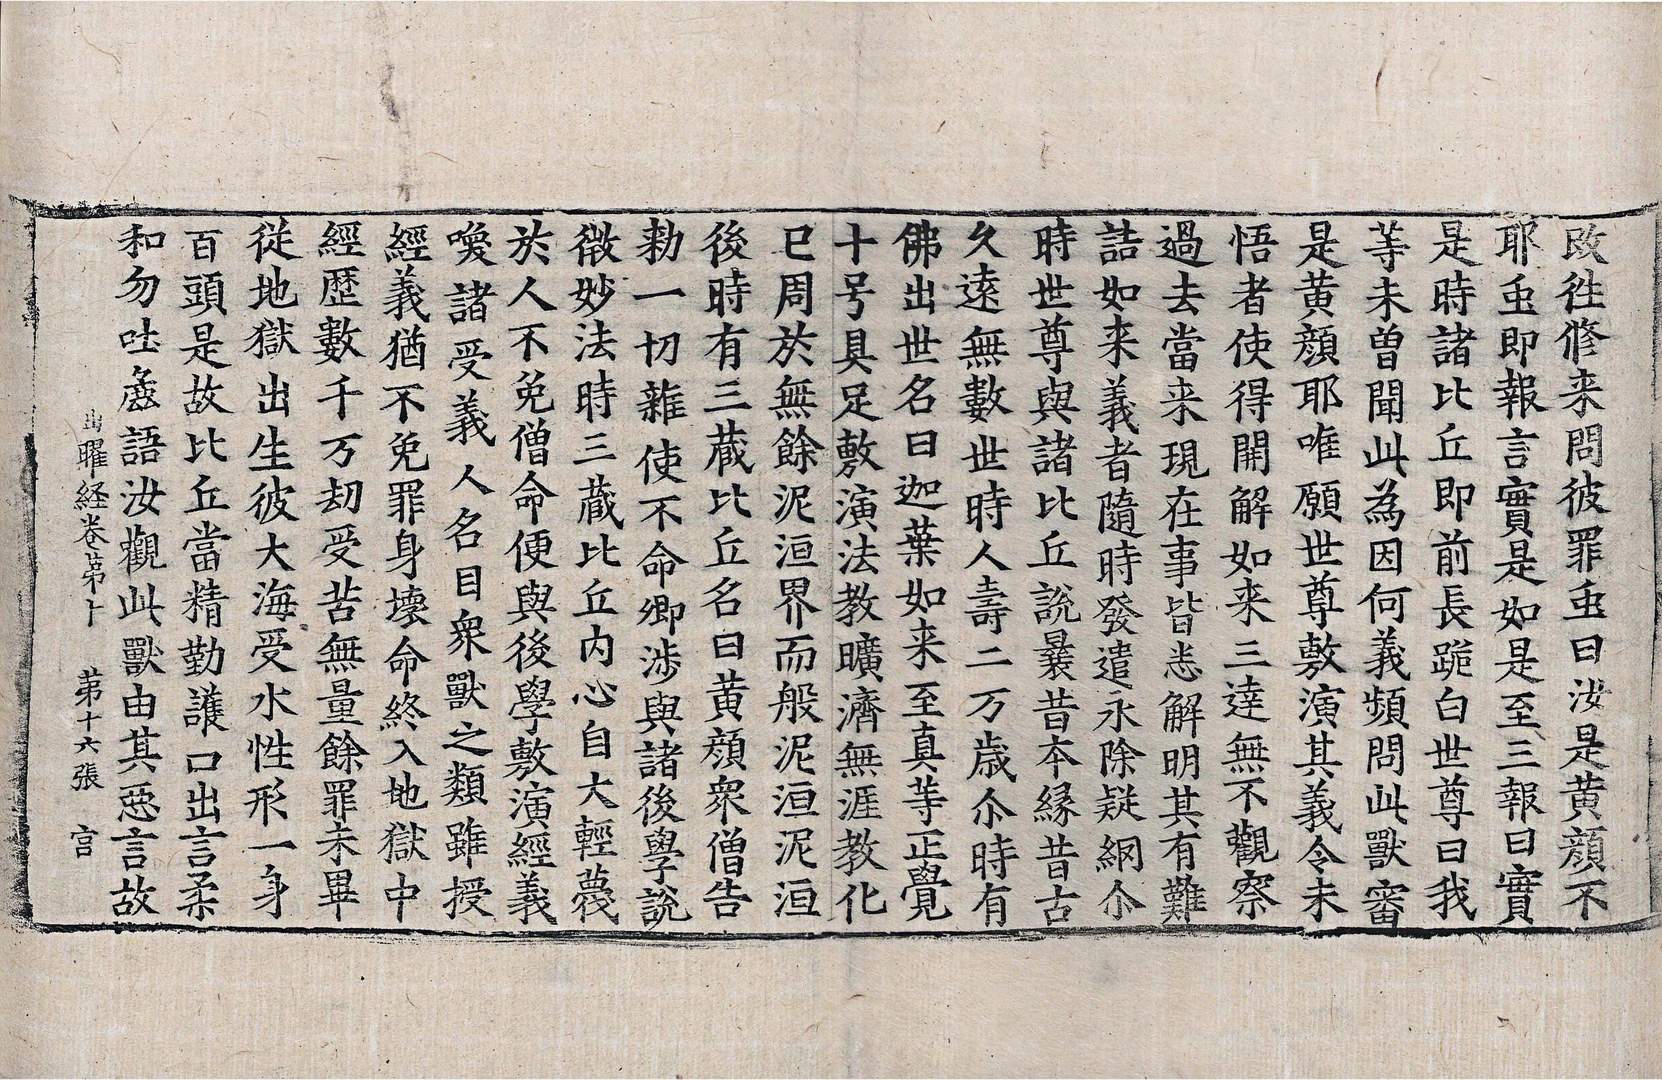 改徃修来問彼罪䖝曰汝是黄顔不
耶䖝即報言實是如是至三報曰實
是時諸比丘即前長跪白世尊曰我
等未曽聞此為因何義頻問此獸審
是黄顔耶唯願世尊敷演其義令未
悟者使得開解如来三達無不觀察
過去當来現在事皆悉解明其有難
詰如来義者隨時發遣永除疑網尒
時世尊與諸比丘說曩昔本縁昔古
久遠無數世時人壽二万歳尒時有
佛出世名曰迦葉如来至真等正覺
十号具足敷演法教曠濟無涯教化
已周於無餘泥洹界而般泥洹泥洹
後時有三蔵比丘名曰黄顔衆僧告
勑一切雜使不命卿渉與諸後學說
微妙法時三蔵比丘内心自大輕蔑
於人不免僧命便與後學敷演經義
喚諸受義人名目衆獸之類雖授
經義猶不免罪身壊命終入地獄中
經歴數千万刧受苦無量餘罪未畢
従地獄出生彼大海受水性形一身
百頭是故比丘當精勤護口出言柔
和勿吐麁語汝觀此獸由其惡言故
出曜経卷苐十　苐十六張　宫